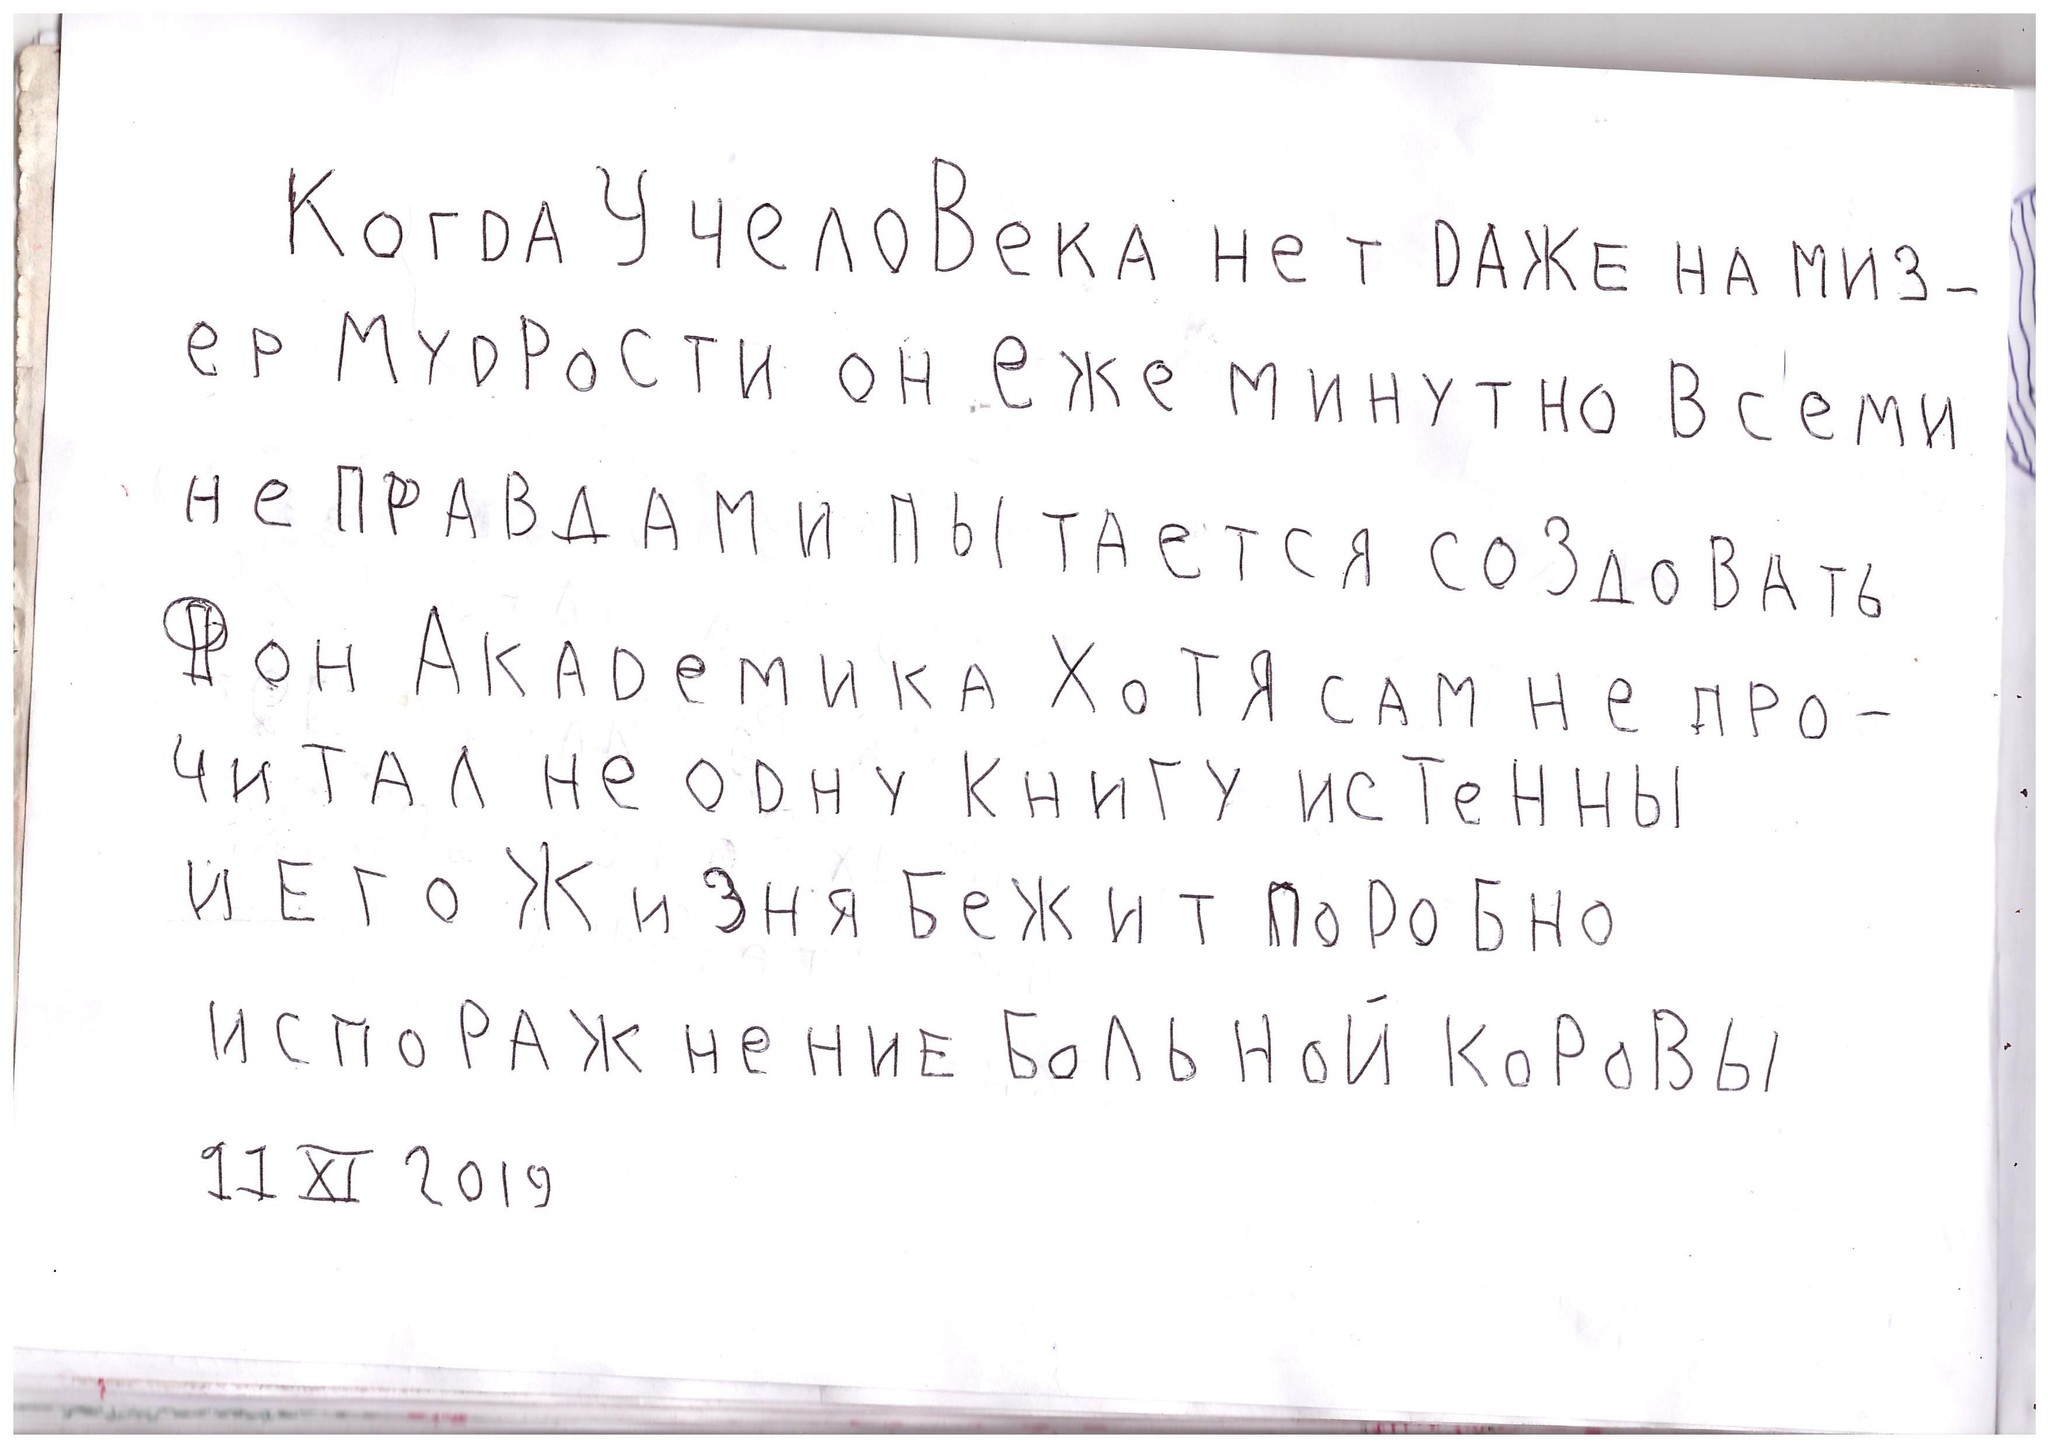 Когда У человека нет даже на миз-
ер Мудрости он еже минутно всеми
не правдами пытается создовать
Фон Академика Хотя сам не про-
читал не одну книгу истенны
и Его Жизня бежит поробно
испоражнение больной коровы
11 XI 2019